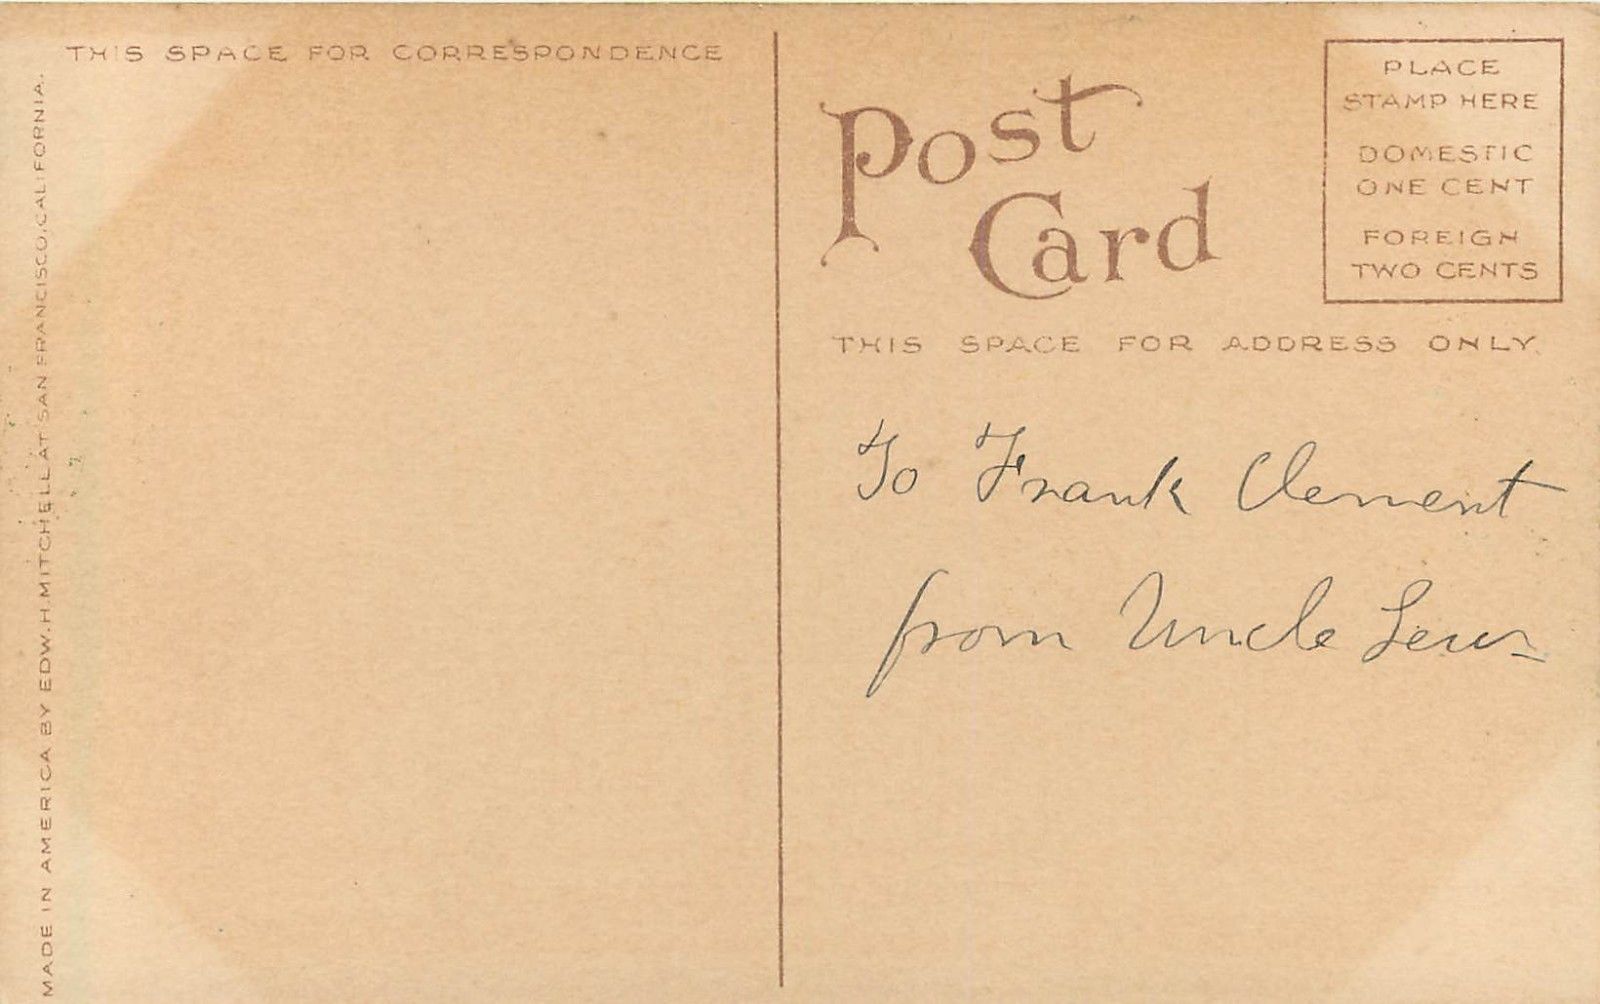 THIS SPACE FOR CORRESPONDENCE
MADE IN AMERICA BY EDW. H. MITCHELL AT SAN FRANCISCO, CALIFORNIA.
Post
Card
PLACE
STAMP HERE
DOMESTIC
ONE CENT
FOREIGN
TWO CENTS
THIS SPACE FOR ADDRESS ONLY.
To Frank Clement
from Uncle Lewis